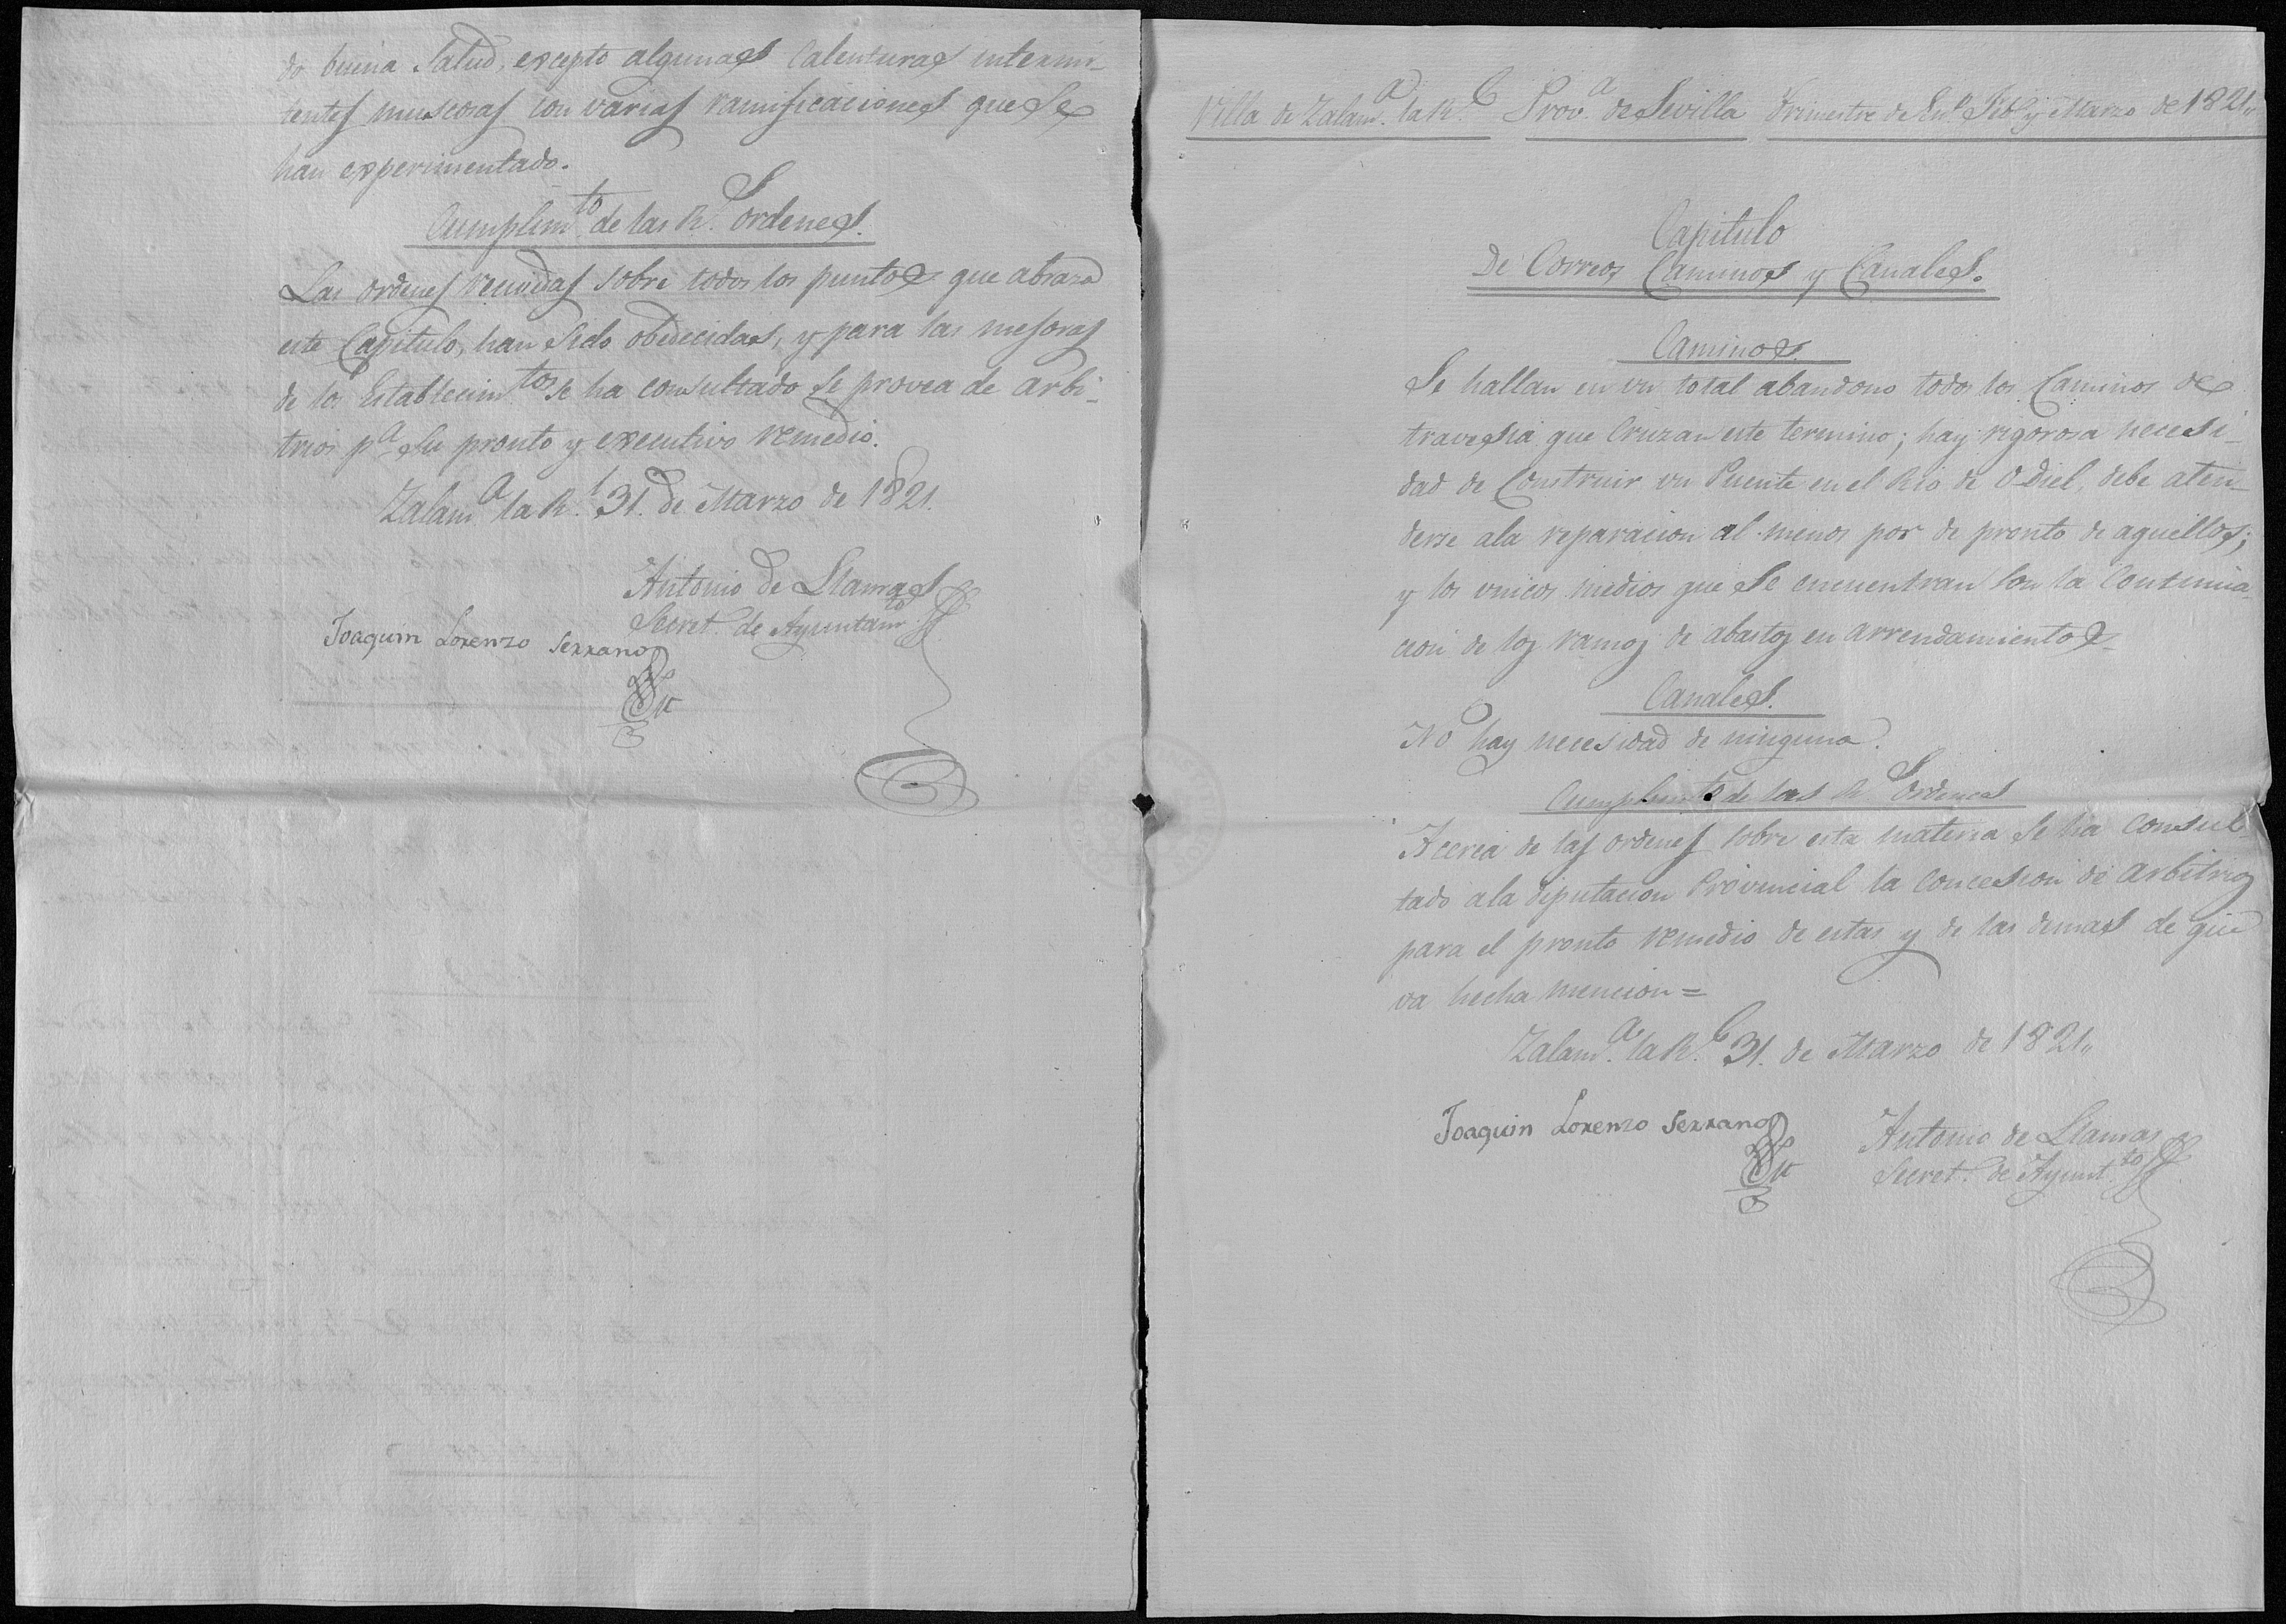 do buena Salud, excepto algunas Calenturas intermi-
tentes muscosas con varias ramificaciones que se
han experimentado.
Cumplim.to de las R.s ordenes.
Las ordenes venidas sobre todos los puntos que abraza
este Capitulo, han sido obedecidas, y para las mejoras
de los Establecim.tos se ha consultado se provea de arbi-
trios p.a su pronto y executivo remedio.
Zalam.a la R.l 31. de Marzo de 1821.
Antonio de Llamas
Secret. de Ayuntam.to
Joaquin Lorenzo Serrano
Villa de Zalam.a la R.l Prov.a de Sevilla Trimestre de En.o Feb.o y Marzo de 1821,,
Capitulo
De Correos Caminos y Canales.
Caminos.
Se hallan en un total abandono todos los Caminos de
travesia que Cruzan este termino; hay rigorosa necesi-
dad de Construir un Puente en el Rio de Odiel, debe aten-
derse ala reparacion al menos por de pronto de aquellos;
y los unicos medios que se encuentran son la Continua-
cion de los ramos de abastos en arrendamientos
Canales.
No hay necesidad de ninguno.
Cumplim.to de las R.s Ordenes
Acerca de las ordenes sobre esta materia se ha Consul-
tado ala Diputacion Provincial la Concesion de arbitrios
para el pronto remedio de estas y de las demas de que
va hecha mencion=
Zalam.a la R.l 31. de Marzo de 1821,,
Joaquin Lorenzo Serrano
Antonio de Llamas
Secret. de Ayunt.to